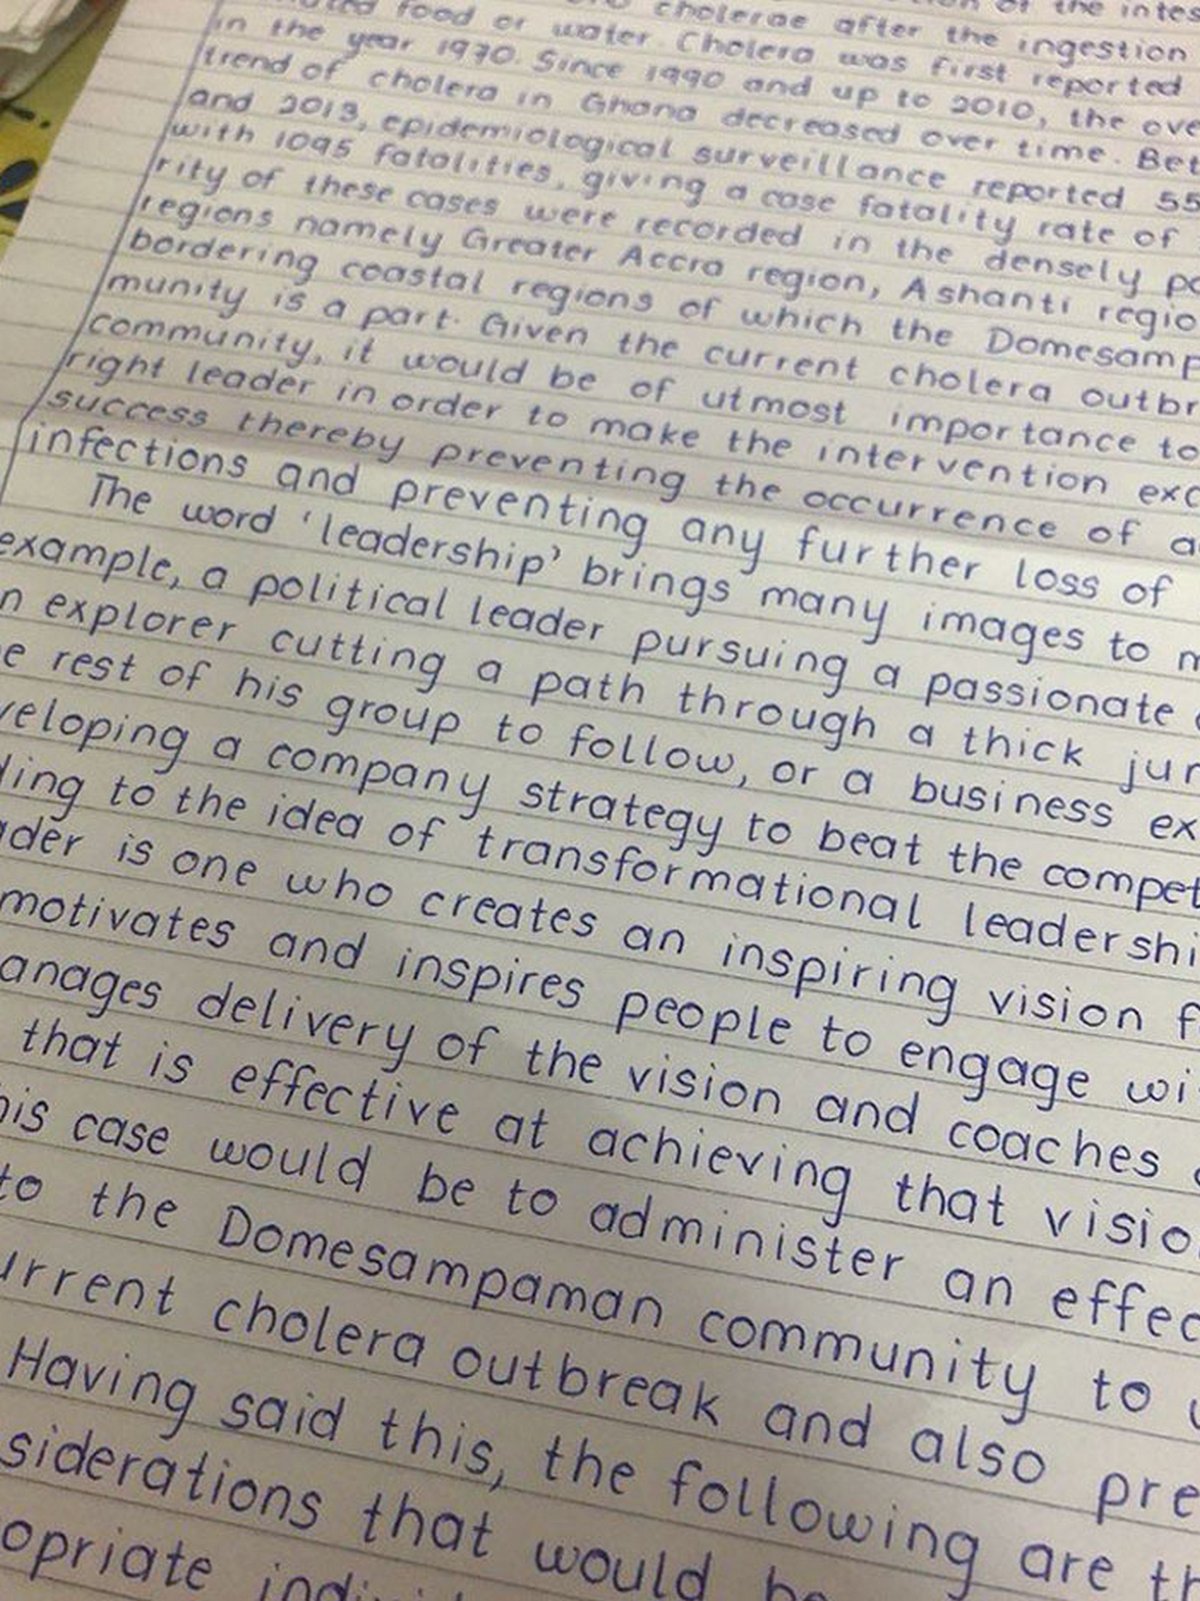 food or water. Cholera was first reported
in the year 1970. Since 1990 and up to 2010, the ove
trend of cholera in Ghana decreased over time. Bet
and 2013, epidemiological surveillance reported 55
with 1095 fatalities, giving a case fatality rate of
rity of these cases were recorded in the densely po
regions namely Greater Accra region, Ashanti regio
bordering coastal regions of which the Domesamp
munity is a part. Given the current cholera outbr
community, it would be of utmost importance to
right leader in order to make the intervention exc
success thereby preventing the occurrence of a
infections and preventing any further loss of
The word 'leadership' brings many images to m
example, a political leader pursuing a passionate
n explorer cutting a path through a thick jun
e rest of his group to follow, or a business ex
veloping a company strategy to beat the compet
ding to the idea of transformational leadershi
ader is one who creates an inspiring vision f
motivates and inspires people to engage wi
anages delivery of the vision and coaches
that is effective at achieving that visio
his case would be to administer an effec
to the Domesampaman community to
urrent cholera outbreak and also pre
Having said this, the following are th
siderations that would be
opriate